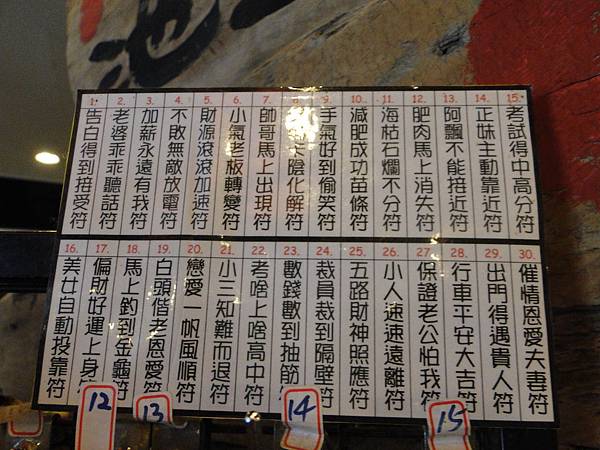 池
1. 告白得到接受符
2. 老婆乖乖聽話符
3. 加薪永遠有我符
4. 不敗無敵放電符
5. 財源滾滾加速符
6. 小氣老板轉變符
7. 帥哥馬上出現符
8. 卡陰化解符
9. 手氣好到偷笑符
10. 減肥成功苗條符
11. 海枯石爛不分符
12. 肥肉馬上消失符
13. 阿飄不能接近符
14. 正妹主動靠近符
15. 考試得中高分符
16. 美女自動投靠符
17. 偏財好運上身符
18. 馬上釣到金龜符
19. 白頭偕老恩愛符
20. 戀愛一帆風順符
21. 小三知難而退符
22. 考啥上啥高中符
23. 數錢數到抽筋符
24. 裁員裁到隔壁符
25. 五路財神照應符
26. 小人速速遠離符
27. 保證老公怕我符
28. 行車平安大吉符
29. 出門得遇貴人符
30. 催情恩愛夫妻符
12
13
14
15